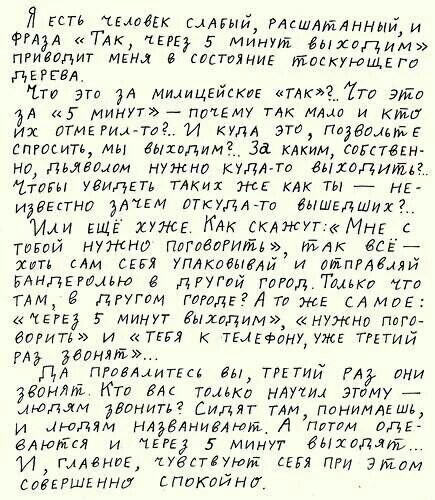 Я есть человек слабый, расшатанный, и
фраза «Так, через 5 минут выходим»
приводит меня в состояние тоскующего
дерева.
Что это за милицейское «так»?.. Что это
за «5 минут» — почему так мало и кто
их отмерил-то?.. И куда это, позвольте
спросить, мы выходим?.. За каким, собствен-
но, дьяволом нужно куда-то выходить?..
Чтобы увидеть таких же как ты — не-
известно зачем откуда-то вышедших?..
Или ещё хуже. Как скажут: «Мне с
тобой нужно поговорить», так всё —
хоть сам себя упаковывай и отправляй
бандеролью в другой город. Только что
там, в другом городе? А то же самое:
«через 5 минут выходим», «нужно пого-
ворить» и «тебя к телефону, уже третий
раз звонят»...
Да провалитесь вы, третий раз они
звонят. Кто вас только научил этому —
людям звонить? Сидят там, понимаешь,
и людям названивают. А потом оде-
ваются и через 5 минут выходят...
И, главное, чувствуют себя при этом
совершенно спокойно.